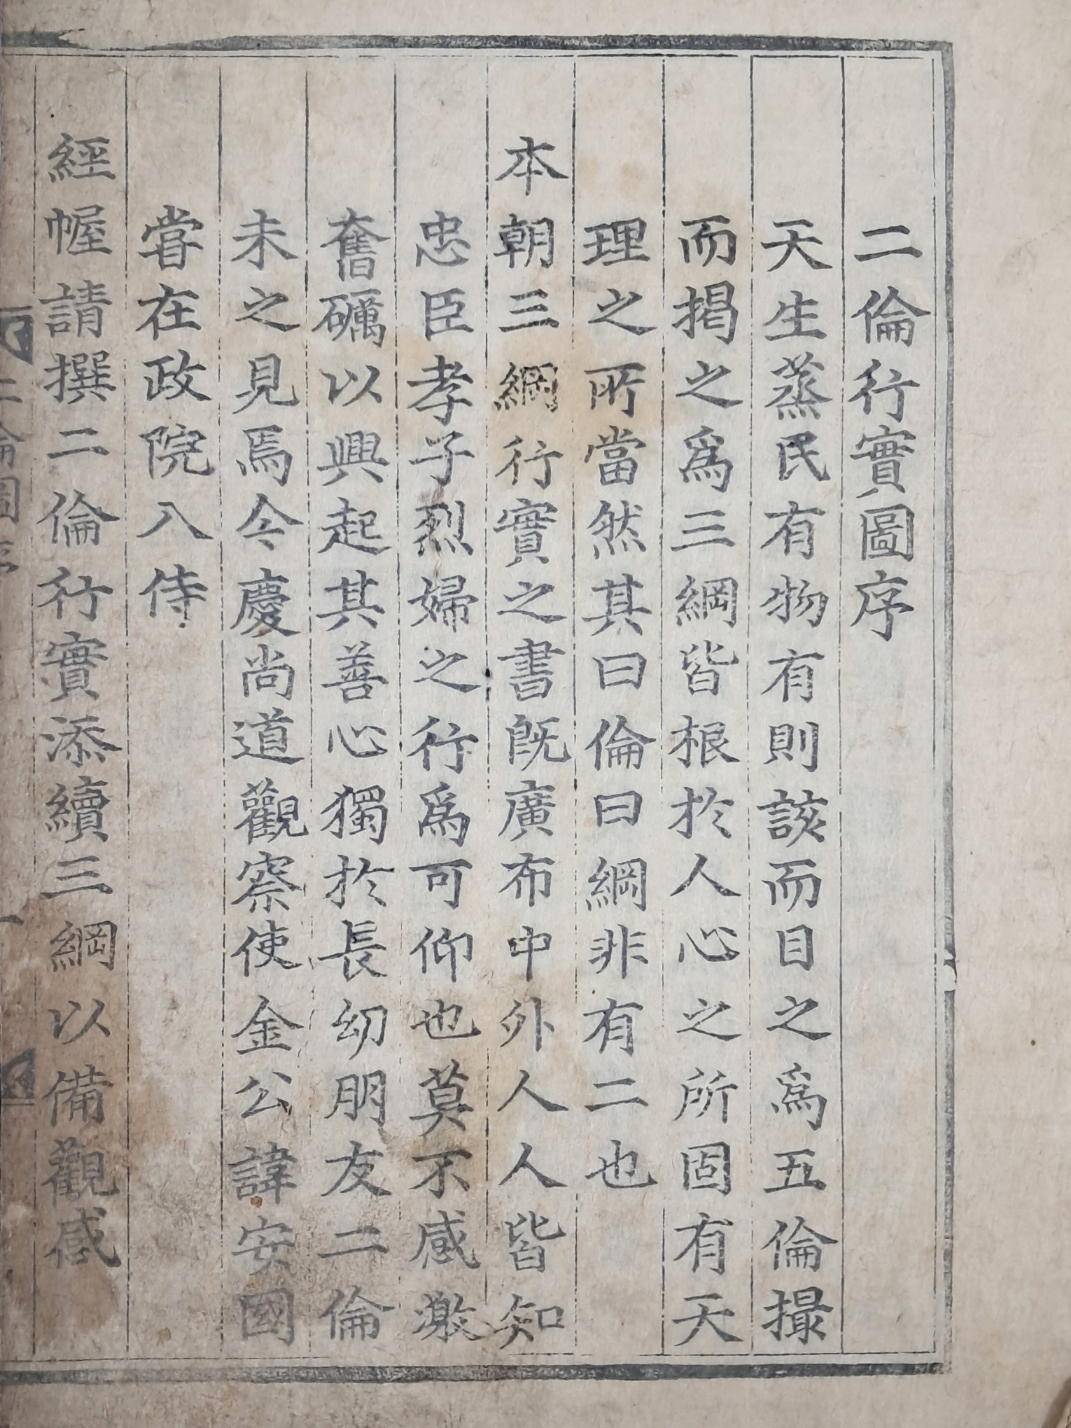 二倫行實圖序
天生蒸民有物有則該而目之爲五倫撮
而揭之爲三綱皆根於人心之所固有天
理之所當然其曰倫曰綱非有二也
本朝三綱行實之書旣廣布中外人人皆知
忠臣孝子烈婦之行爲可仰也莫不感激
奮礪以興起其善心獨於長幼朋友二倫
未之見焉今慶尚道觀察使金公諱安國
嘗在政院入侍
經幄請撰二倫行實添續三綱以備觀感
二倫圖序 一